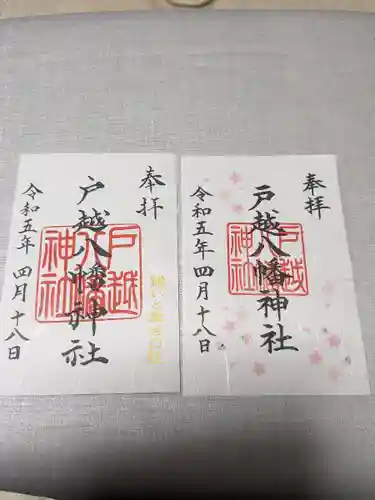 奉拝
戸越八幡神社
令和五年 四月十八日
戸越八幡神社
奉拝
戸越八幡神社
令和五年 四月十八日